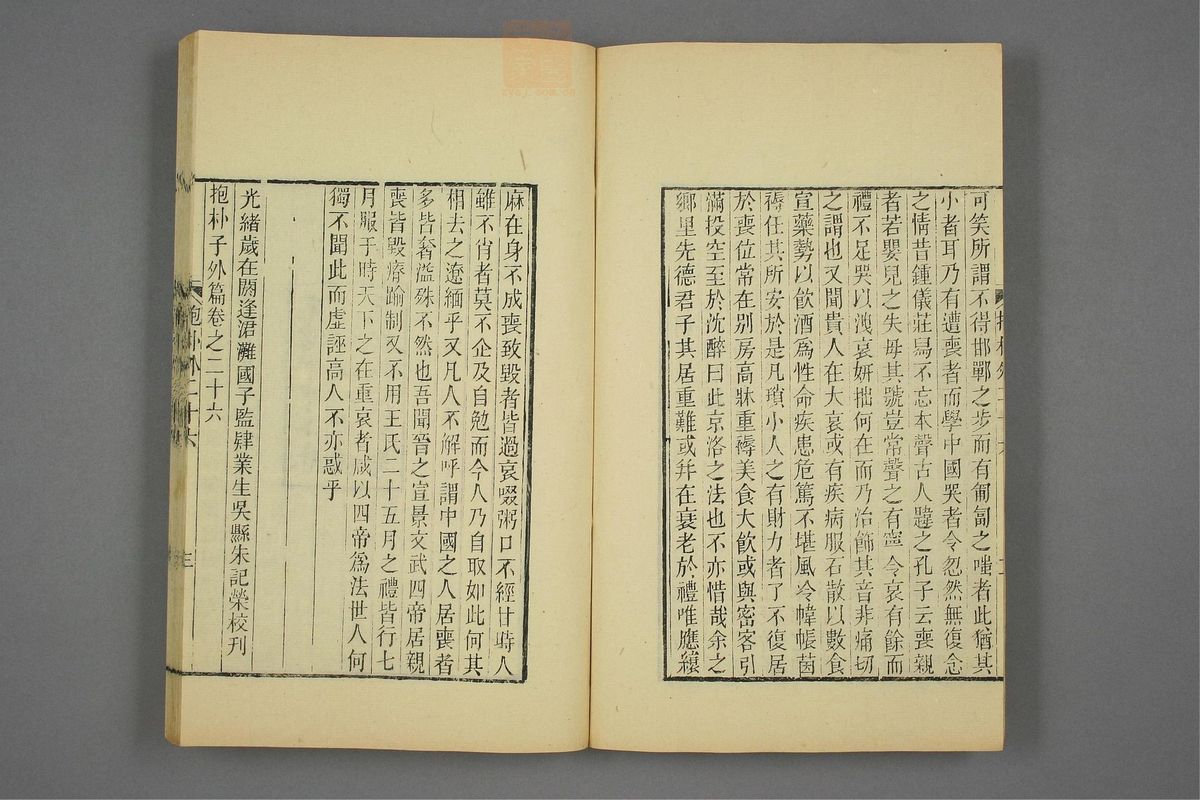 可笑所謂不得邯鄲之步而有匍匐之嗤者此猶其
小者耳乃有遭喪者而學中國哭者令忽然無復念
之情昔鍾儀莊舄不忘本聲古人韙之孔子云喪親
者若嬰兒之失母其號豈常聲之有寧令哀有餘而
禮不足哭以洩哀妍拙何在而乃治飾其音非痛切
之謂也又聞貴人在大哀或有疾病服石散以數食
宣藥勢以飲酒爲性命疾患危篤不堪風冷幃帳茵
褥任其所安於是凡瑣小人之有財力者了不復居
於喪位常在別房高牀重褥美食大飲或與密客引
滿投空至於沈醉曰此京洛之法也不亦惜哉余之
鄉里先德君子其居重難或幷在衰老於禮唯應縗
麻在身不成喪致毀者皆過哀啜粥口不經甘時人
雖不肖者莫不企及自勉而今人乃自取如此何其
相去之遼緬乎又凡人不解呼謂中國之人居喪者
多皆奢溢殊不然也吾聞晉之宣景文武四帝居親
喪皆毀瘠踰制又不用王氏二十五月之禮皆行七
月服于時天下之在重哀者咸以四帝爲法世人何
獨不聞此而虛誣高人不亦惑乎
光緒歲在閼逢涒灘國子監肄業生吳縣朱記榮校刊
抱朴子外篇卷之二十六
抱朴外二十六